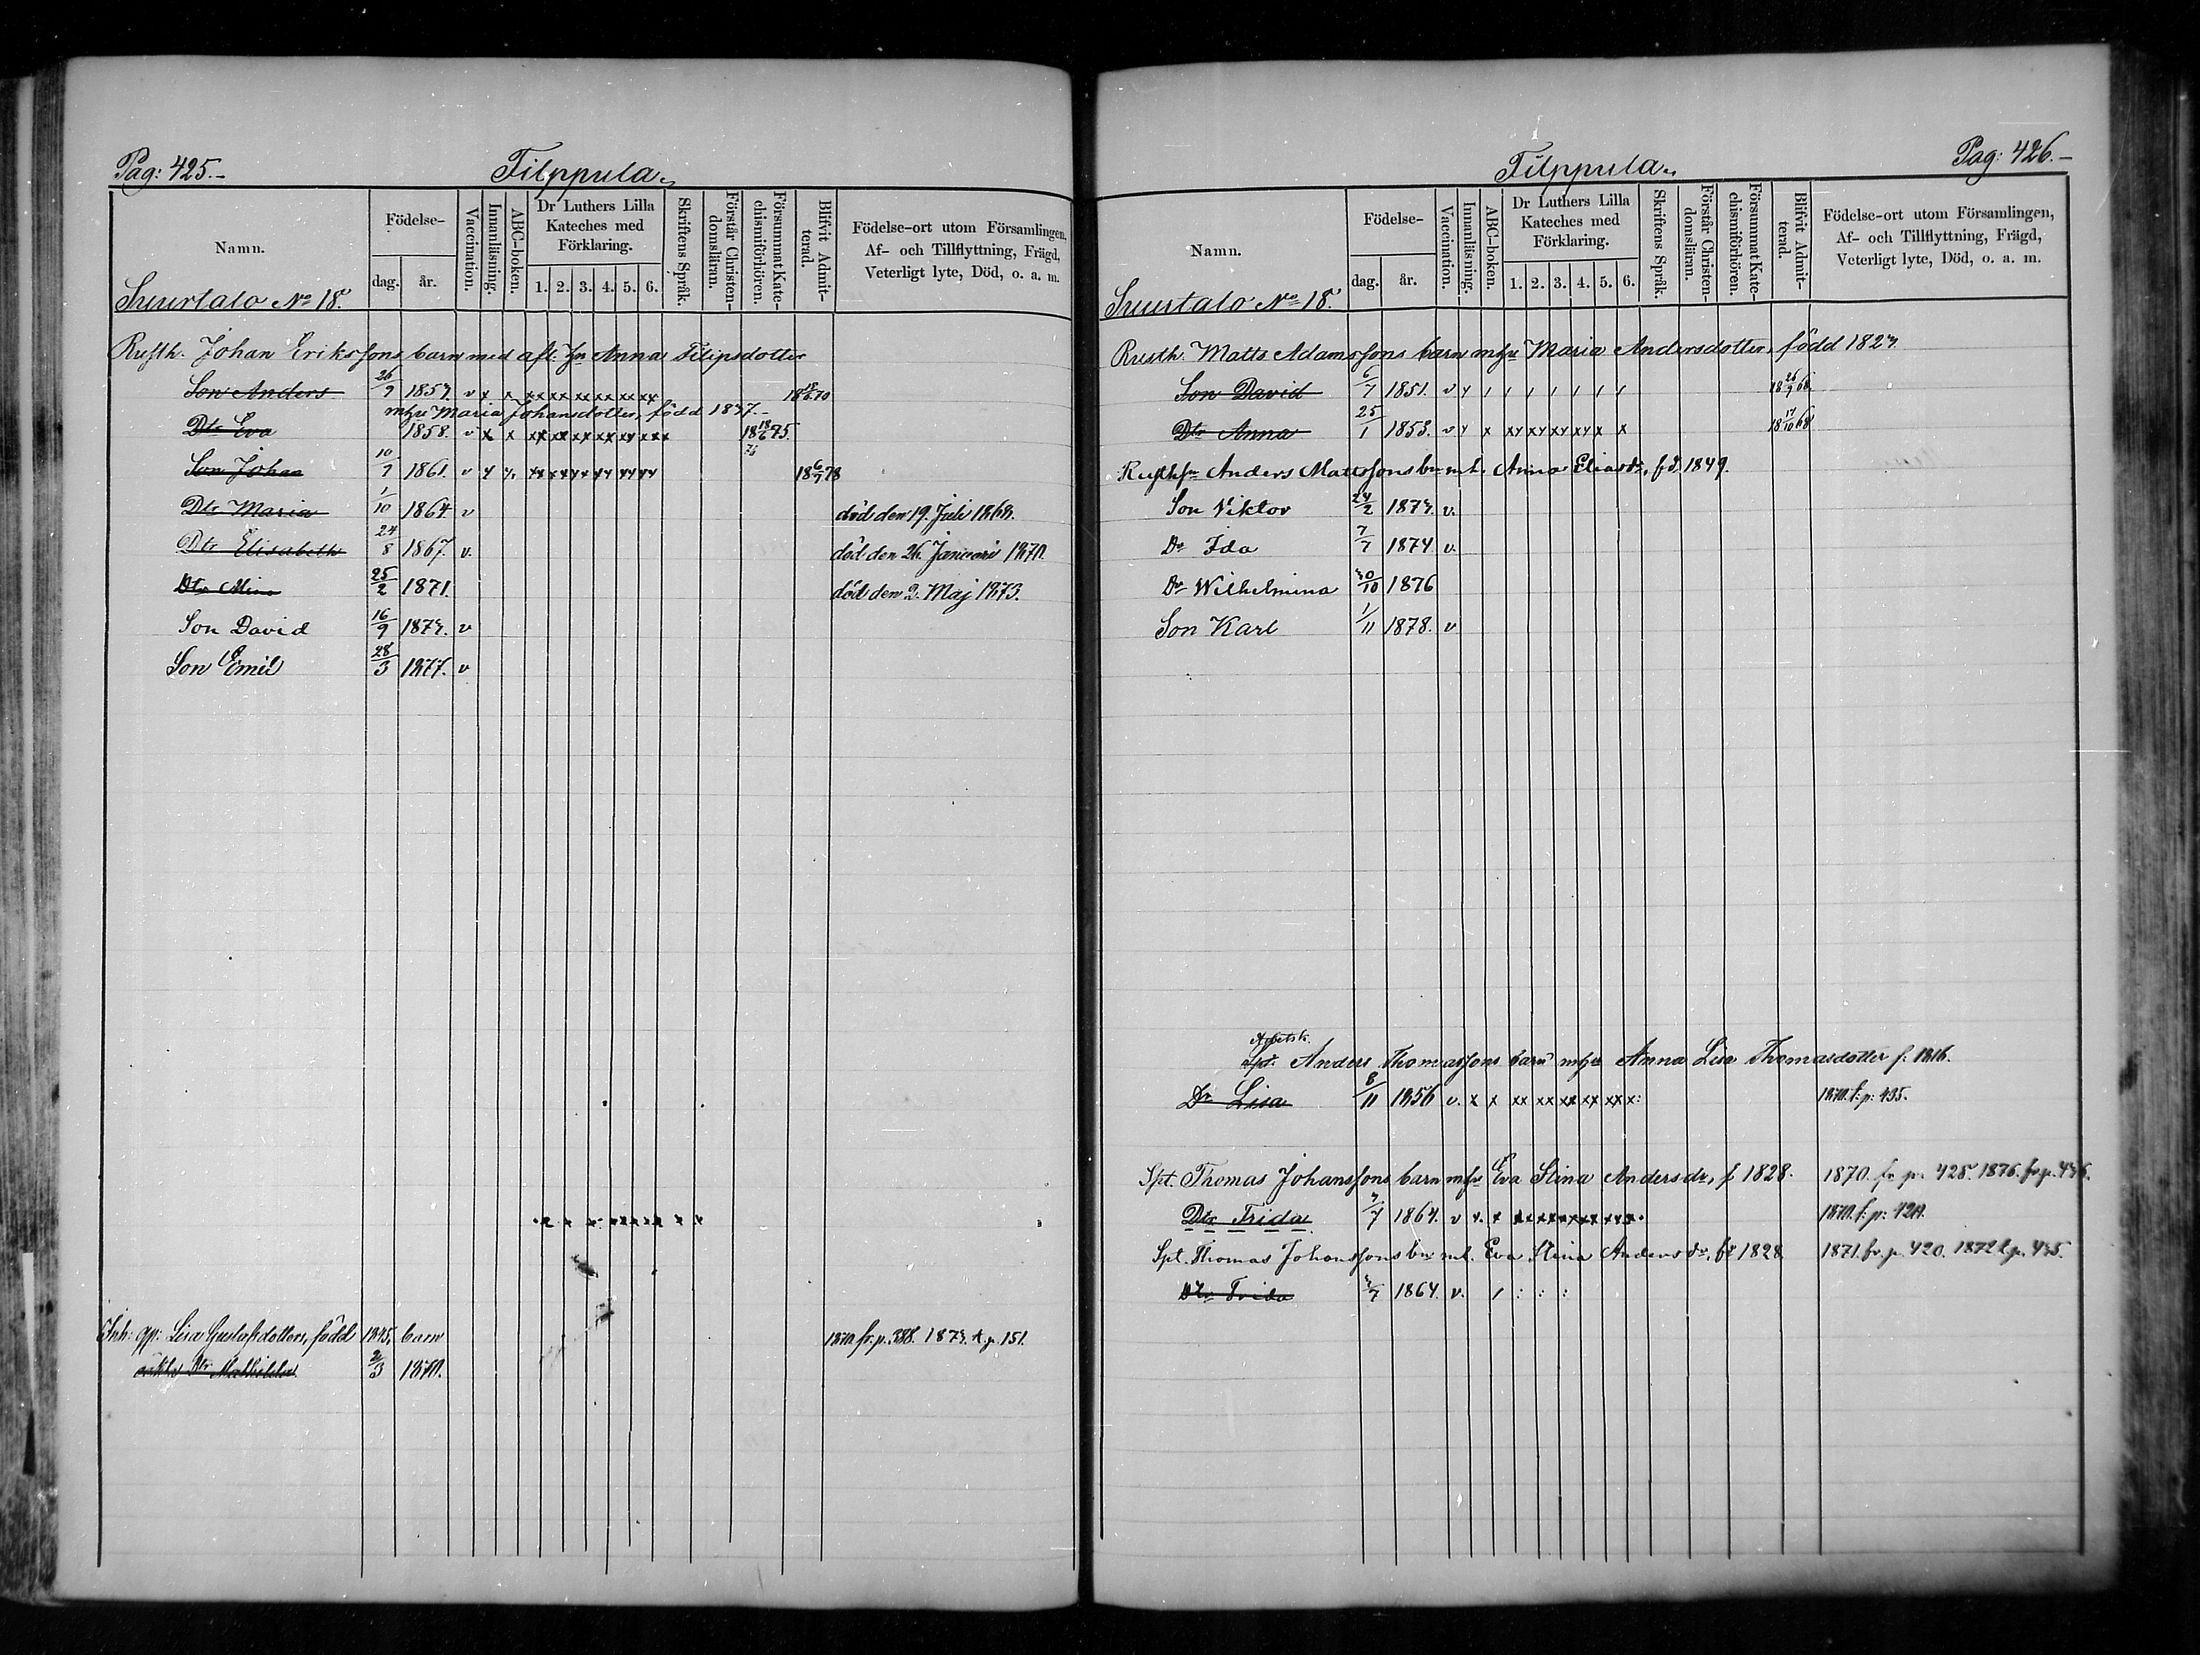 Pag: 425.-
Filppula.
Namn.
Födelse-
dag. år.
Vaccination.
Innanläsning.
ABC-boken.
Dr Luthers Lilla
Kateches med
Förklaring.
1. 2. 3. 4. 5. 6.
Skriftens Språk.
Förstår Christen-
domsläran.
Försummat Kate-
chismiförhören.
Blifvit Admit-
terad.
Födelse-ort utom Församlingen,
Af- och Tillflyttning, Frägd,
Veterligt lyte, Död, o. a. m.
Suurtalo No 18.
Rusth. Johan Erikssons barn med afl. Hu Anna Filipsdotter
Son Anders 26/9 1857. v x x xx xx xx xx xx xx
mhu Maria Johansdotter, född 1837.-
Dtr Eva 1858. v x x xx xx xx xx xx xxx 18 18/6 75.
Son Johan 10/7 1861. v 18 6/7 78
Dtr Maria 1/10 1864 v död den 19. Juli 1868.
Dtr Elisabeth 24/8 1867. v. död den 26. Januari 1870.
Dtr Mina 25/2 1871. död den 2. Maj 1873.
Son David 16/9 1873. v
Son Emil 28/3 1877. v
Inh: Lisa Gustafsdotters, född 1845, barn 1870 fr. p. 388. 1873. t. p. 151.
oäkta Dtr Mathilda 2/3 1870.
Pag: 426.-
Filppula.
Namn.
Födelse-
dag. år.
Vaccination.
Innanläsning.
ABC-boken.
Dr Luthers Lilla
Kateches med
Förklaring.
1. 2. 3. 4. 5. 6.
Skriftens Språk.
Förstår Christen-
domsläran.
Försummat Kate-
chismiförhören.
Blifvit Admit-
terad.
Födelse-ort utom Församlingen,
Af- och Tillflyttning, Frägd,
Veterligt lyte, Död, o. a. m.
Suurtalo No 18.
Rusth. Matts Adamssons barn mhu Maria Andersdotter, född 1823.
Son David 6/7 1851. v 18 26/9 68
Dtr Anna 25/1 1853. v 18 17/10 68
Rusthfn Anders Mattssons bn mh. Anna Eliasdr, fd 1849.
Son Viktor 24/2 1873. v.
Dr Ida 7/7 1874 v.
Dr Wilhelmina 30/10 1876
Son Karl 1/11 1878. v
Arbetsk.
Spt. Anders Thomassons barn mhu Anna Lisa Thomasdotter f. 1816.
Dr Lisa 8/11 1856 v. x x xx xx xx xx xx x: 1870. t: p: 435.
Spt. Thomas Johanssons barn mhu Eva Stina Andersdr, f 1828. 1870. fr. p. 428. 1876. fr. p. 436.
Dtr Frida 3/7 1864. v 1870. t: p: 420.
Spt. Thomas Johanssons bn mh. Eva Stina Andersdr, fd 1828 1871. fr. p. 420. 1872 t. p. 435.
Dtr Frida 3/7 1864. v.